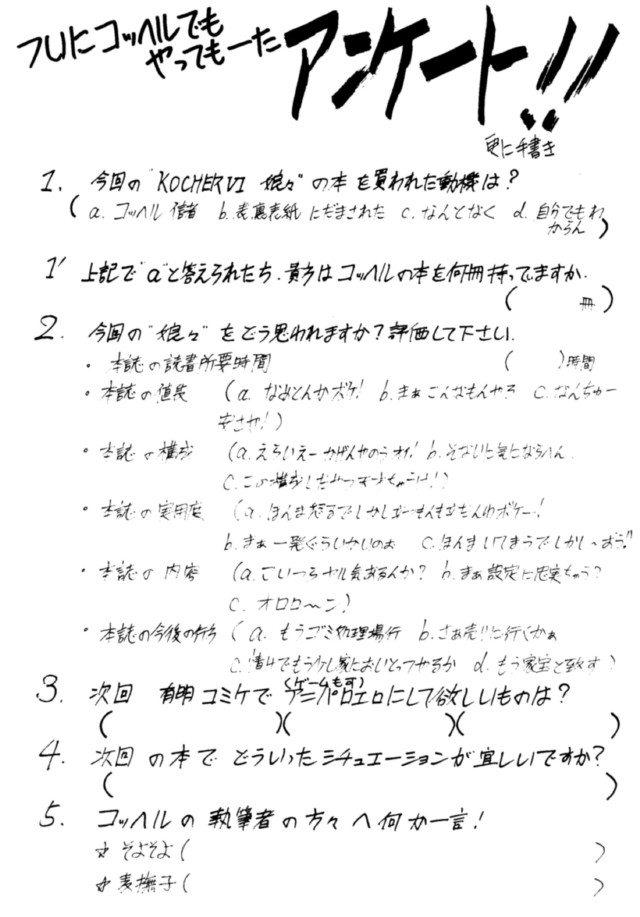 フリにコッヘルでも
やってもーた
アンケート!!
更に手書き
1. 今回の"KOCHER VI 娘々"の本を買われた動機は?
(a. コッヘル信者 b. 表裏表紙にだまされた c. なんとなく d. 自分でもわ
からん)
1' 上記で"a"と答えられたら、貴方はコッヘルの本を何冊持ってますか.
( 冊)
2. 今回の"娘々"をどう思われますか?評価して下さい.
・本誌の読書所要時間 ( )時間
・本誌の値段 (a. なめとんかボケ! b. まぁこんなもんやろ c. なんちゅー
安さや!)
・本誌の構成 (a. えらいえーかげんやのうオイ! b. そないに気にならへん
c. この構成しだいっすっちゃうけ!)
・本誌の実用度
b. まぁ一発ぐらいかいのぉ c. ほんまいてまうでしかし〜おう!!
・本誌の内容 (a. こいつらヤル気あるんか? b. まぁ設定に忠実ちゃう?
c. オロロ〜ン)
・本誌の今後の行方 (a. もうゴミ処理場行 b. さぁ売りに行くかぁ
c. 情けでもう少し家においとってやるか d. もう家宝と致す)
3. 次回 有明コミケでアニパロエロにして欲しいものは?
(ゲームも可)
( )( )( )
4. 次回の本でどういったシチュエーションが宜しいですか?
( )
5. コッヘルの執筆者の方々へ何か一言!
☆そよそよ( )
☆麦撫子( )